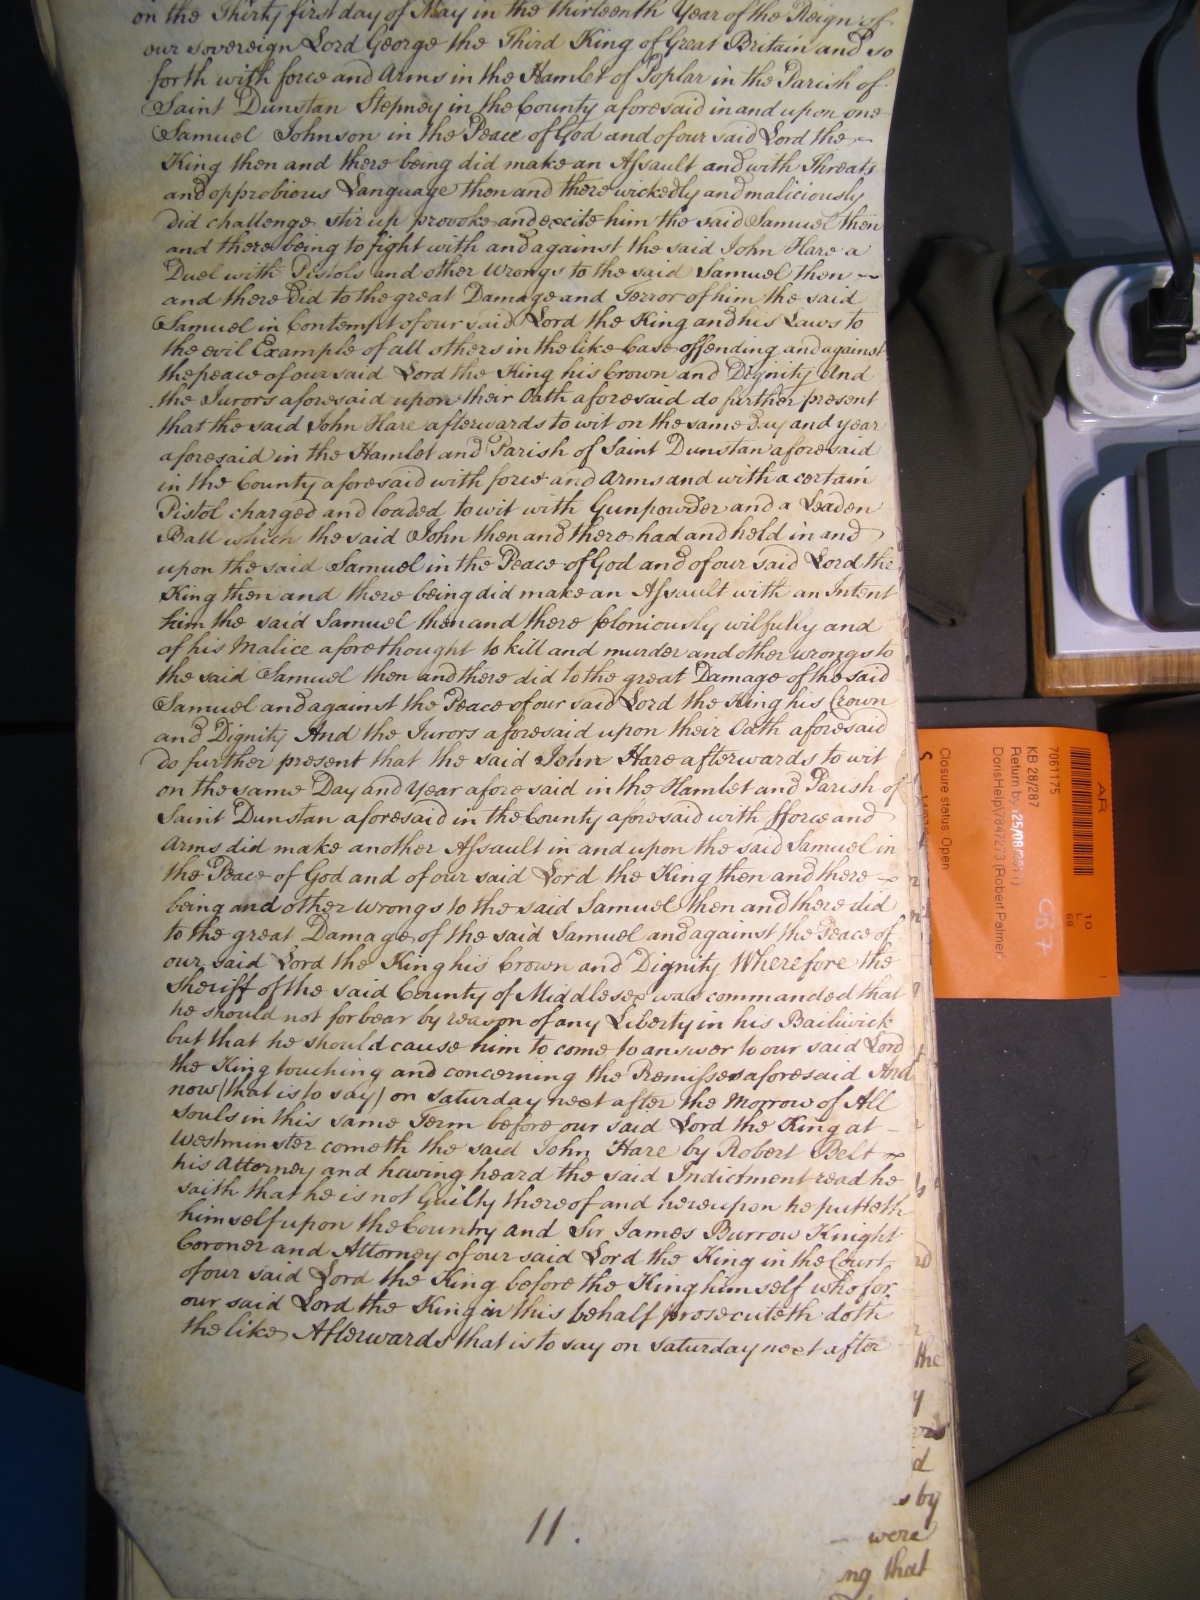 on the Thirty first day of May in the thirteenth Year of the Reign of
our sovereign Lord George the Third King of Great Britain and so
forth with force and Arms in the Hamlet of Poplar in the Parish of
Saint Dunstan Stepney in the County aforesaid in and upon one
Samuel Johnson in the Peace of God and of our said Lord the
King then and there being did make an Assault and with Threats
and opprobious Language then and there wickedly and maliciously
did challenge stir up provoke and excite him the said Samuel then
and there being to fight with and against the said John Hare a
Duel with Pistols and other Wrongs to the said Samuel then
and there did to the great Damage and Terror of him the said
Samuel in Contempt of our said Lord the King and his Laws to
the evil Example of all others in the like Case offending and against
the peace of our said Lord the King his Crown and Dignity And
the Jurors aforesaid upon their Oath aforesaid do further present
that the said John Hare afterwards to wit on the same Day and year
aforesaid in the Hamlet and Parish of Saint Dunstan aforesaid
in the County aforesaid with force and Arms and with a certain
Pistol charged and loaded to wit with Gunpowder and a Leaden
Ball which the said John then and there had and held in and
upon the said Samuel in the Peace of God and of our said Lord the
King then and there being did make an Assault with an Intent
him the said Samuel then and there feloniously wilfully and
of his Malice aforethought to kill and murder and other wrongs to
the said Samuel then and there did to the great Damage of the said
Samuel and against the Peace of our said Lord the King his Crown
and Dignity And the Jurors aforesaid upon their Oath aforesaid
do further present that the said John Hare afterwards to wit
on the same Day and Year aforesaid in the Hamlet and Parish of
Saint Dunstan aforesaid in the County aforesaid with fforce and
Arms did make another Assault in and upon the said Samuel in
the Peace of God and of our said Lord the King then and there
being and other Wrongs to the said Samuel then and there did
to the great Damage of the said Samuel and against the Peace of
our said Lord the King his Crown and Dignity Wherefore the
sheriff of the said County of Middlesex was commanded that
he should not forbear by reason of any Liberty in his Bailiwick
but that he should cause him to come to answer to our said Lord
the King touching and concerning the Premisses aforesaid And
now (that is to say) on Saturday next after the Morrow of All
souls in this same Term before our said Lord the King at
Westminster cometh the said John Hare by Robert Belt
his Attorney and having heard the said Indictment read he
saith that he is not Guilty thereof and hereupon he putteth
himself upon the Country and Sir James Burrow Knight
Coroner and Attorney of our said Lord the King in the Court
of our said Lord the King before the King himself who for
our said Lord the King in this behalf prosecuteth doth
the like Afterwards that is to say on Saturday next after
11.
the
y
d
s by
were
ng that
AR
7061175
KB 28/287
Return by (25/08/2011)
DorisHelp\7847273 (Robert Palmer
Closure status: Open
10
L
66